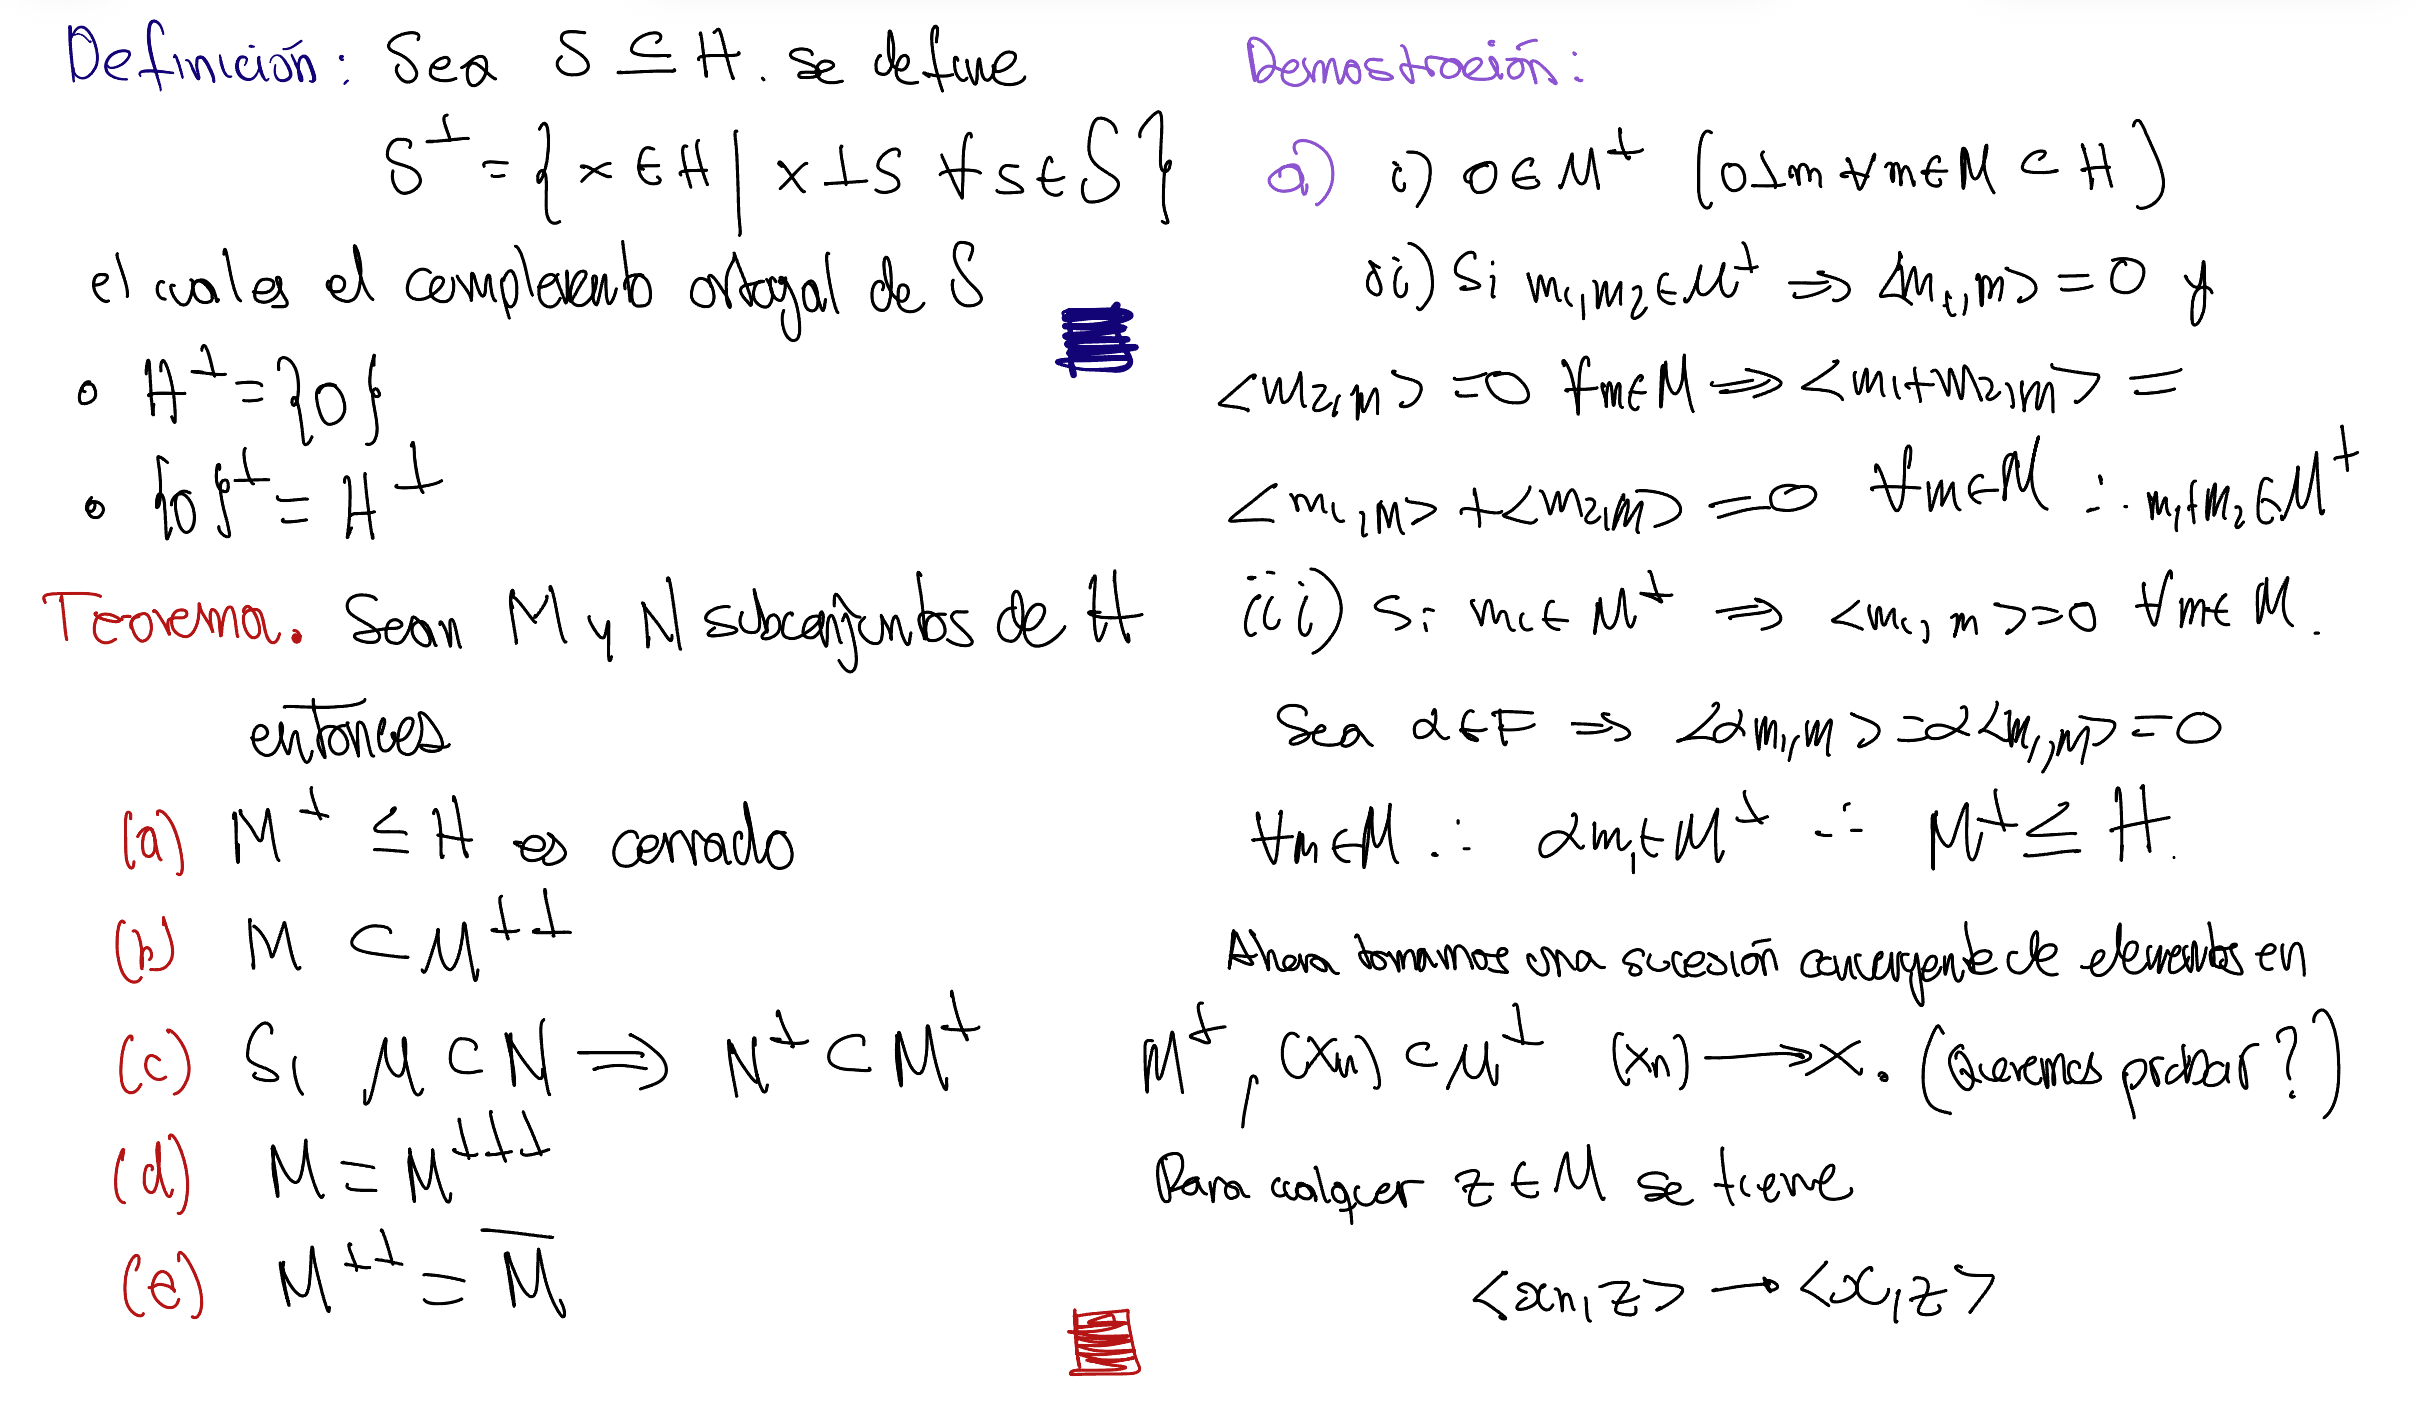 Definición: Sea S ⊆ H. se define
S^⊥ = { x ∈ H | x ⊥ s ∀ s ∈ S }
el cual es el complemento ortogal de S
• H^⊥ = {0}
• {0}^⊥ = H^⊥
Teorema. Sean M y N subconjuntos de H
entonces
(a) M^⊥ ≤ H es cerrado
(b) M ⊂ M^⊥⊥
(c) Si M ⊂ N ⟹ N^⊥ ⊂ M^⊥
(d) M = M^⊥⊥⊥
(e) M^⊥⊥ = \overline{M}
Demostración:
a) i) 0 ∈ M^⊥ (0 ⊥ m ∀ m ∈ M ⊂ H)
ii) Si m₁, m₂ ∈ M^⊥ ⟹ <m₁, m> = 0 y
<m₂, m> = 0 ∀ m ∈ M ⟹ <m₁ + m₂, m> =
<m₁, m> + <m₂, m> = 0 ∀ m ∈ M ∴ m₁ + m₂ ∈ M^⊥
iii) Si m₁ ∈ M^⊥ ⟹ <m₁, m> = 0 ∀ m ∈ M.
Sea α ∈ F ⟹ <αm₁, m> = α<m₁, m> = 0
∀ m ∈ M ∴ αm₁ ∈ M^⊥ ∴ M^⊥ ≤ H.
Ahora tomamos una sucesión convergente de elementos en
M^⊥, (xn) ⊂ M^⊥ (xn) ⟶ x. (Queremos probar?)
Para cualquer z ∈ M se tiene
<xn, z> → <x, z>